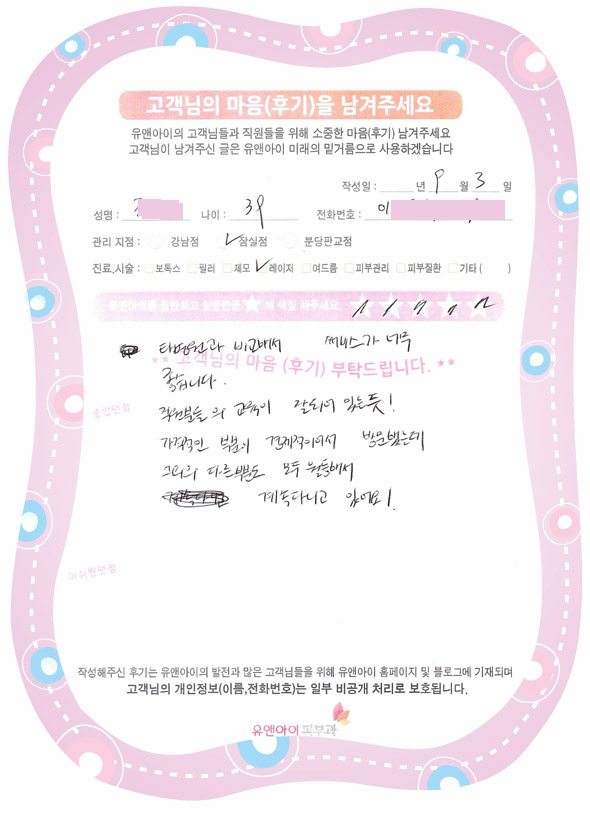 고객님의 마음(후기)을 남겨주세요
유앤아이의 고객님들과 직원들을 위해 소중한 마음(후기) 남겨주세요
고객님이 남겨주신 글은 유앤아이 미래의 밑거름으로 사용하겠습니다
작성일 : 년 9 월 3 일
성명 : 나이 : 39 전화번호 : 이
관리 지점 : 강남점 잠실점 분당판교점
진료,시술 : 보톡스 필러 제모 레이저 여드름 피부관리 피부질환 기타 ( )
유앤아이를 칭찬하고 싶은만큼 ★에 색칠 해주세요 ★★★★★
타병원과 비교해서 써비스가 너무
★★ 고객님의 마음 (후기) 부탁드립니다. ★★
좋습니다.
좋았던점
직원분들의 교육이 잘되어 있는듯!
가격적인 부분이 경제적이여서 방문했는데
그외의 다른부분도 모두 만족해서
계속다니고 있어요!
아쉬웠던점
작성해주신 후기는 유앤아이의 발전과 많은 고객님들을 위해 유앤아이 홈페이지 및 블로그에 기재되며
고객님의 개인정보(이름,전화번호)는 일부 비공개 처리로 보호됩니다.
유앤아이피부과